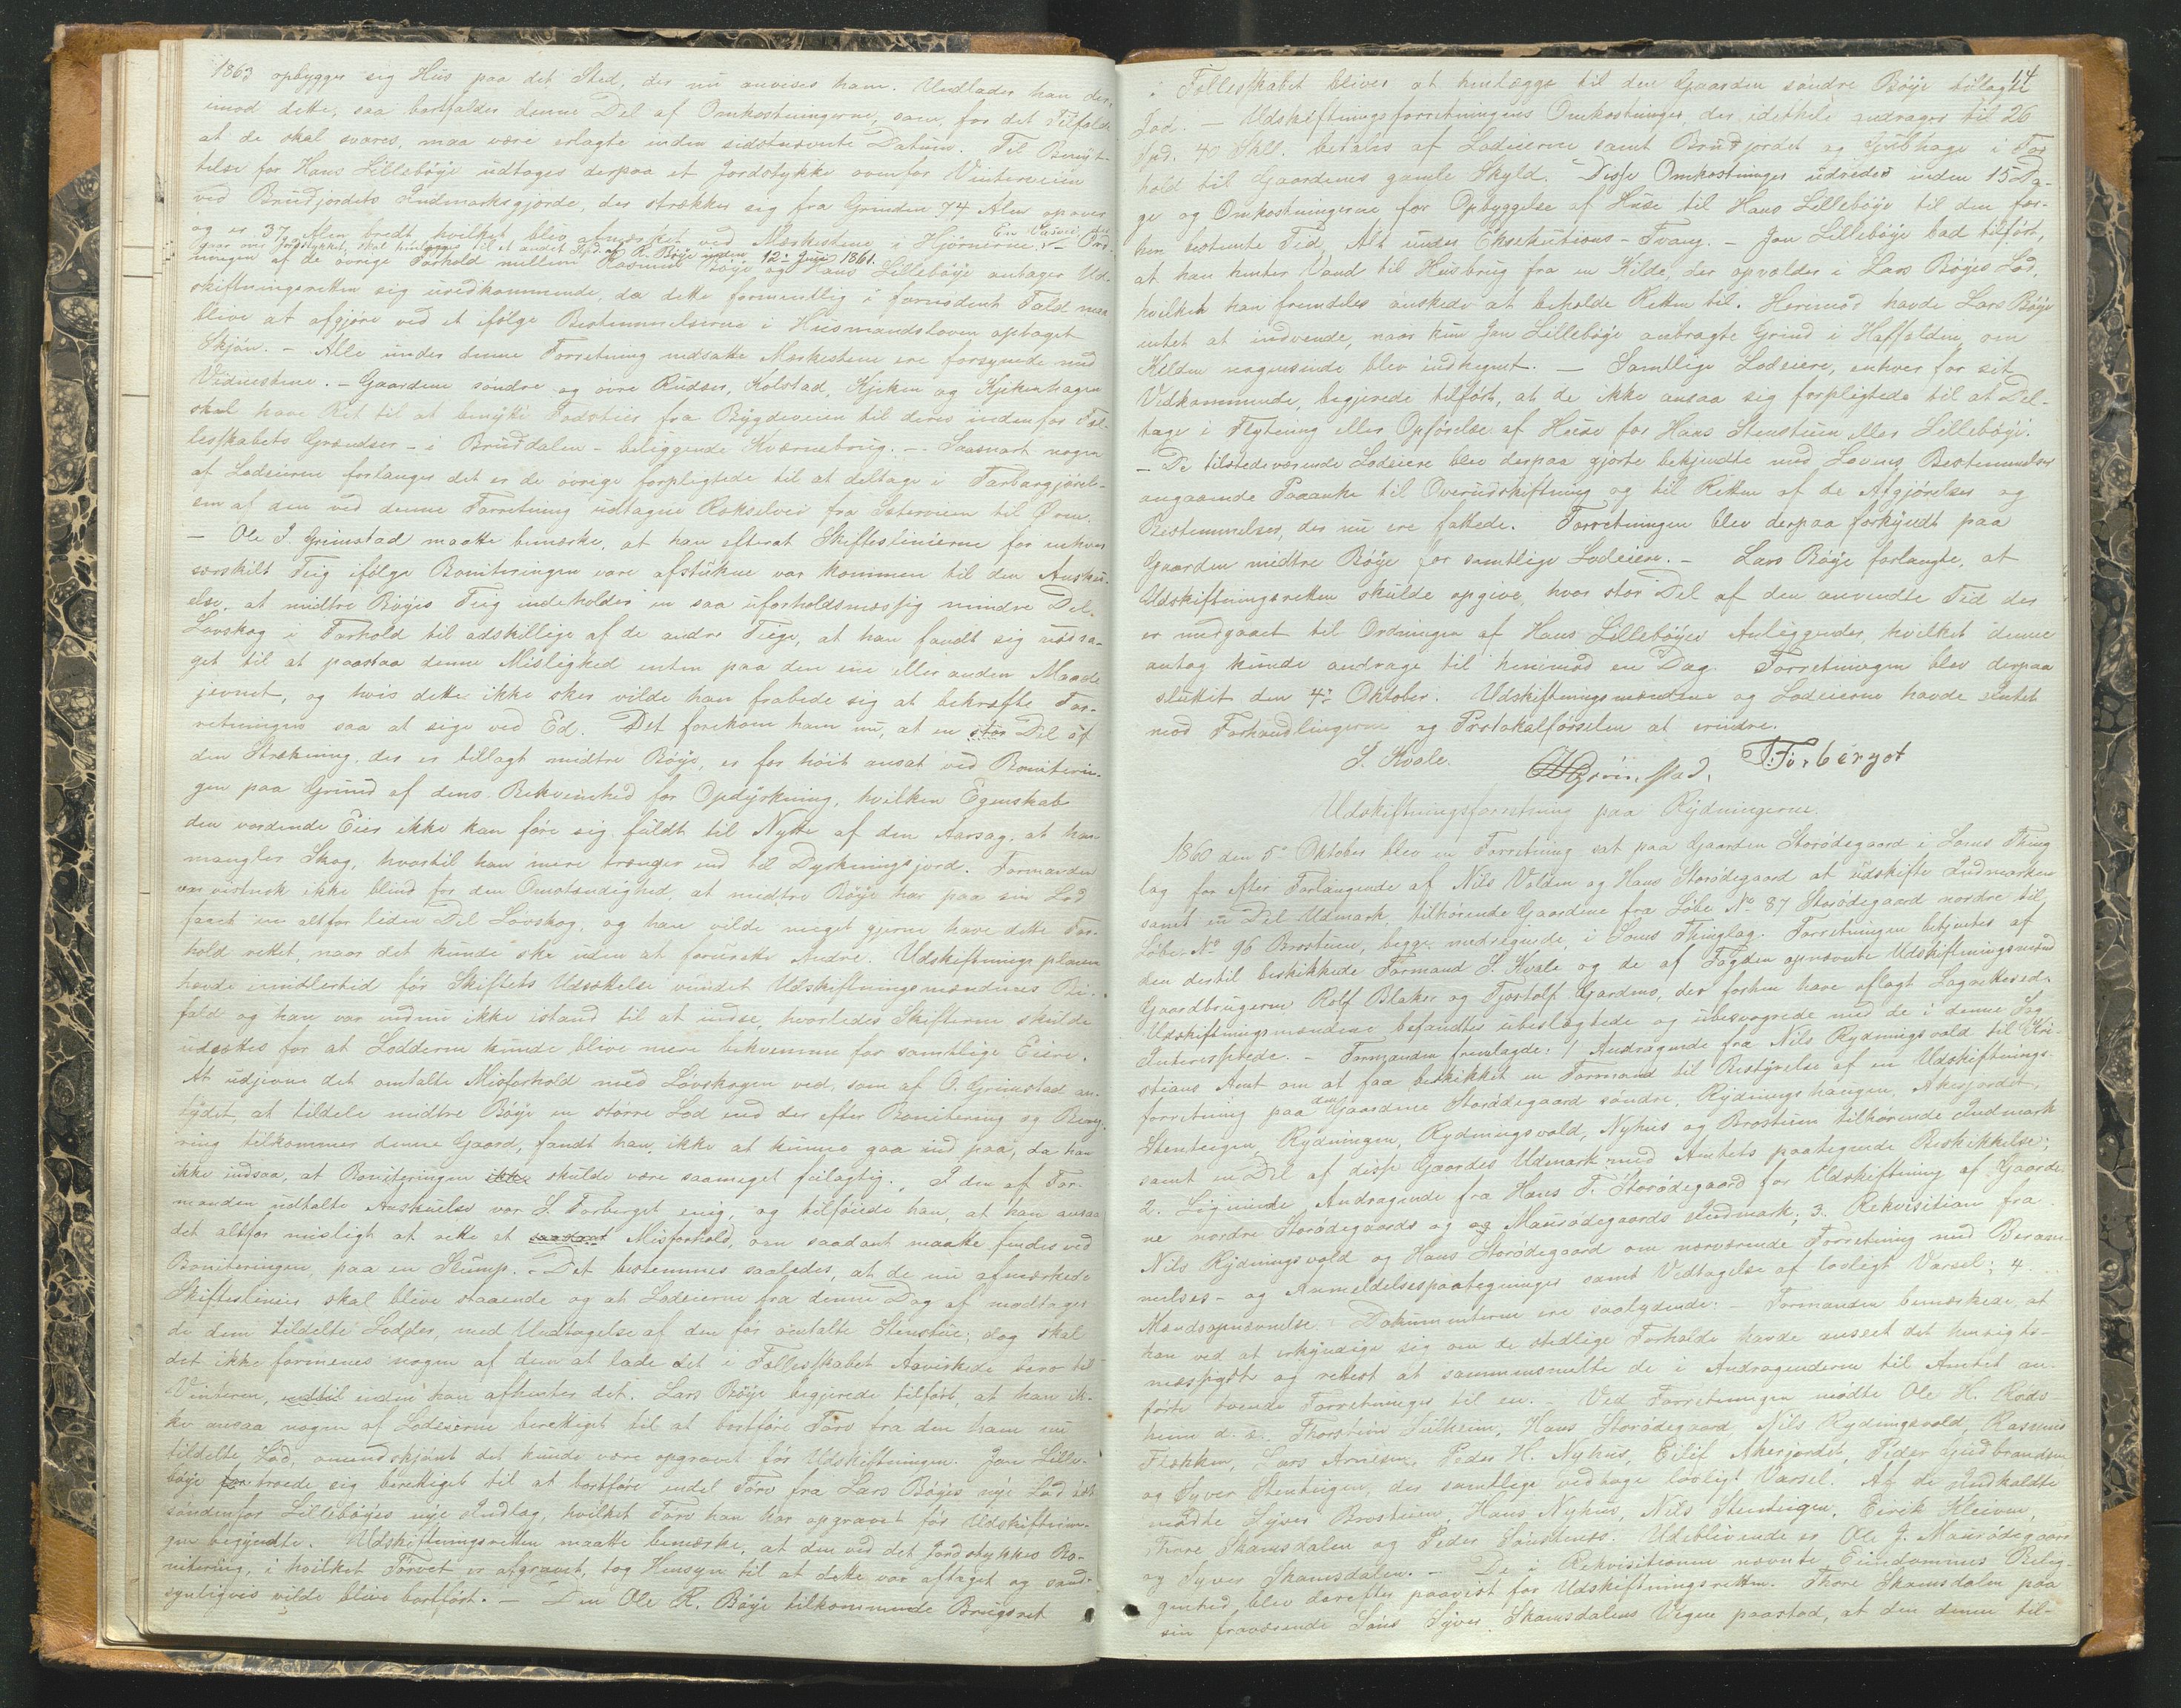 1863 opbygger sig Hus paa det Sted, der nu anvises ham. Undlader han der-
imod dette, saa bortfalder denne Del af Omkostningerne, som, for det Tilfælde
at de skal svares, maa være erlagte inden sidstnævnte Datum. Til Benyt-
telse for Hans Lillebøye udtoges derpaa et Jordstykke ovenfor Vinterveien
ved Brudjordets Indmarksgjærde, der strækker sig fra Grinden 74 Alen opover
og er 37 Alen bredt, hvilket blev afmærket ved Mærkestene i Hjørnerne. En Vasvei der
gaar over Jordstykket, skal henlægges til et andet Sted af R. Bøye inden 12te Juni 1861. – Ord-
ningen af de øvrige Forhold mellem Rasmus Bøye og Hans Lillebøye antager Ud-
skiftningsretten sig uvedkommende, da dette formentlig i fornødent Fald maa
blive at afgjøre ved et ifølge Bestemmelserne i Husmandsloven optaget
Skjøn. – Alle under denne Forretning nedsatte Merkestene ere forsynede med
Vidnestene. – Gaardene søndre og øvre Rudser, Kolstad, Kjeken og Kjekenhagen
skal have Ret til at benytte Fodstier fra Bygdeveien til deres indenfor Fæl-
lesskabets Grændser – i Bruddalen – beliggende Kværnebrug. – Saasnart nogen
af Lodeierne forlanger det er de øvrige forpligtede til at deltage i Farbargjørel-
sen af den ved denne Forretning udtagne Rokselvei fra Sæterveien til Øren.
– Ole J. Grimstad maatte bemærke, at han efterat Skifteslinierne for enhver
særskilt Teig ifølge Boniteringen vare afstukne var kommen til den Ansku-
else, at midtre Bøyes Teig indeholder en saa uforholdsmæssig mindre Del
Løvskog i Forhold til adskillige af de andre Teige, at han fandt sig nødsa-
get til at paastaa denne Mislighed enten paa den ene eller anden Maade
jevnet, og hvis dette ikke sker vilde han frabede sig at bekræfte For-
retningen saa at sige ved Ed. Det forekom ham nu, at en stor Del af
den Strækning, der er tillagt midtre Bøye, er for høit ansat ved Boniterin-
gen paa Grund af dens Bekvemhed for Opdyrkning, hvilken Egenskab
den vordende Eier ikke kan føre sig fuldt til Nytte af den Aarsag, at han
mangler Skog, hvortil han mere trænger end til Dyrkningsjord. Formanden
var vistnok ikke blind for den Omstændighed, at midtre Bøye har paa sin Lod
faaet en altfor liden Del Løvskog, og han vilde meget gjerne have dette For-
hold rettet, naar det kunde ske uden at forurette Andre. Udskiftningsplanen
havde imidlertid før Skiftets Udsættelse vundet Udskiftningsmændenes Bi-
fald og han var endnu ikke istand til at indse, hvorledes Skifterne skulde
udsættes for at Lodderne kunde blive mere bekvemme for samtlige Eiere.
At udjevne det omtalte Misforhold med Løvskogen ved, som af O. Grimstad an-
tydet, at tildele midtre Bøye en større Lod end der efter Bonitering og Bereg-
ning tilkommer denne Gaard, fandt han ikke at kunne gaa ind paa, da han
ikke indsaa, at Boniteringen ikke skulde være saameget feilagtig. I den af For-
manden udtalte Anskuelse var S. Forberget enig, og tilføiede han, at han ansaa
det altfor misligt at rette et saadant Misforhold, om saadant maatte findes ved
Boniteringen, paa en Slump. – Det bestemmes saaledes, at de nu afmærkede
Skifteslinier skal blive staaende og at Lodeierne fra denne Dag af modtager
de dem tildelte Lodder, med Undtagelse af den før omtalte Stenstue; dog skal
det ikke formenes nogen af dem at lade det i Fællesskabet Aavirkede bero til
Vinteren, indtil inden han afhenter det. Lars Bøye begjerede tilført, at han ik-
ke ansaa nogen af Lodeierne berettiget til at bortføre Tørv fra den ham nu
tildelte Lod, omendskjønt det kunde være opgravet før Udskiftningen. Jon Lille-
bøye for troede sig berettiget til at bortføre endel Tørv fra Lars Bøyes nye Lod
søndenfor Lillebøyes nye Indlag, hvilket Tørv han har opgravet før Udskiftnin-
gen begyndte. Udskiftningsretten maatte bemærke, at den ved det Jordstykkes Bo-
nitering, i hvilket Tørvet er afgravet, tog Hensyn til at dette var aftaget og sand-
synligvis vilde blive bortført. – Den Ole R. Bøye tilkommende Brugsret
14
i Fællesskabet bliver at henlægge til den Gaarden søndre Bøye tillagte
Lod. – Udskiftningsforretningens Omkostninger, der idethele andrager til 26
Spd. 40 Skll. betales af Lodeierne samt Brudjordet og Gubhage i For-
hold til Gaardenes gamle Skyld. Disse Omkostninger udredes inden 15 Da-
ge og Omkostningerne for Opbyggelse af Huse til Hans Lillebøye til den før-
hen bestemte Tid, Alt under Eksekutions-Tvang. – Jon Lillebøye bad tilført,
at han henter Vand til Husbrug fra en Kilde, der opvælder i Lars Bøyes Lod,
hvilket han fremdeles ønskede at beholde Retten til. Herimod havde Lars Bøye
intet at indvende, naar kun Jon Lillebøye anbragte Grind i Havfolden, om
Kilden nogensinde blev indhegnet. – Samtlige Lodeiere, enhver for sit
Vedkommende, begjerede tilført, at de ikke ansaa sig forpligtede til at Del-
tage i Flytning eller Opførelse af Huse for Hans Stenstuen eller Lillebøye.
– De tilstedeværende Lodeiere blev derpaa gjorte bekjendte med Lovens Bestemmelser
angaaende Paaanke til Overudskiftning og til Retten af de Afgjørelser og
Bestemmelser, der nu ere fattede. Forretningen blev derpaa forkyndt paa
Gaarden midtre Bøye for samtlige Lodeiere. – Lars Bøye forlangte, at
Udskiftningsretten skulde opgive, hvor stor Del af den anvendte Tid der
er medgaaet til Ordningen af Hans Lillebøyes Anliggender, hvilket denne
antog kunde andrage til henimod en Dag. Forretningen blev derpaa
sluttet den 4de Oktober. Udskiftningsmændene og Lodeierne havde Intet
mod Forhandlingerne og Protokolførselen at erindre.
S. Kvale. Grimstad. Forberget
Udskiftningsforretning paa Rydningerne.
1860 den 5te Oktober blev en Forretning sat paa Gaarden Storødegaard i Loms Thing-
lag for efter Forlangende af Nils Volden og Hans Storødegaard at udskifte Indmarken
samt en Del Udmark, tilhørende Gaardene fra Løbe No 87 Storødegaard nordre til
Løbe-No 96 Brostuen, begge medregnede, i Loms Thinglag. Forretningen betjentes af
den dertil beskikkede Formand S. Kvale og de af Fogden opnævnte Udskiftningsmænd
Gaardbrugerne Rolf Blaker og Tjostolf Gardmo, der forhen have aflagt Lagrettesed.
Udskiftningsmændene befandtes ubeslægtede og ubesvogrede med de i denne Sag
Interesserede. – Formanden fremlagde: 1 Andragende fra Nils Rydningsvold til Kri-
stians Amt om at faa beskikket en Formand til Bestyrelse af en Udskiftnings-
forretning paa den Gaardene Storødegaard søndre, Rydningshaugen, Akerjordet,
Stenteigen, Rydningen, Rydningsvold, Nyhus og Brostuen tilhørende Indmark
samt en Del af disse Gaardes Udmark med Amtets paategnede Beskikkelse;
2. Lignende Andragende fra Hans T. Storødegaard for Udskiftning af Gaarde-
ne nordre Storødegaards og og Maurødegaards Indmark; 3. Rekvisition fra
Nils Rydningsvold og Hans Storødegaard om nærværende Forretning med Beram-
melses- og Anmeldelsespaategninger samt Vedtagelse af lovligt Varsel; 4.
Mandsopnævnelse. Dokumenterne ere saalydende: – Formanden bemærkede, at
han ved at erkyndige sig om de stedlige Forholde havde anseet det hensigts-
mæssigst og rettest at sammensmelte de i Andragenderne til Amtet an-
førte tvende Forretninger til en. – Ved Forretningen mødte Ole H. Rods-
heim d. e. Thorstein Sulheim, Hans Storødegaard, Nils Rydningsvold, Rasmus
Flekken, Lars Arnesen, Peder H. Nyhus, Eilif Akerjordet, Peder Gudbrandsen
og Syver Stenteigen, der samtlige vedtoge lovligt Varsel. Af de Indkaldte
mødte Syver Brostuen, Hans Nyhus, Nils Stenteigen, Eirik Kleiven,
Thore Skamsdalen og Peder. Udeblivende er Ole J. Maurødegaard
og Syver Skamsdalen. – De i Rekvisitionen nævnte Eiendommes Belig-
genhed blev derefter paavist for Udskiftningsretten. Thore Skamsdalen paa
sin fraværende Søns Syver Skamsdalens Vegne paastod, at den denne til-